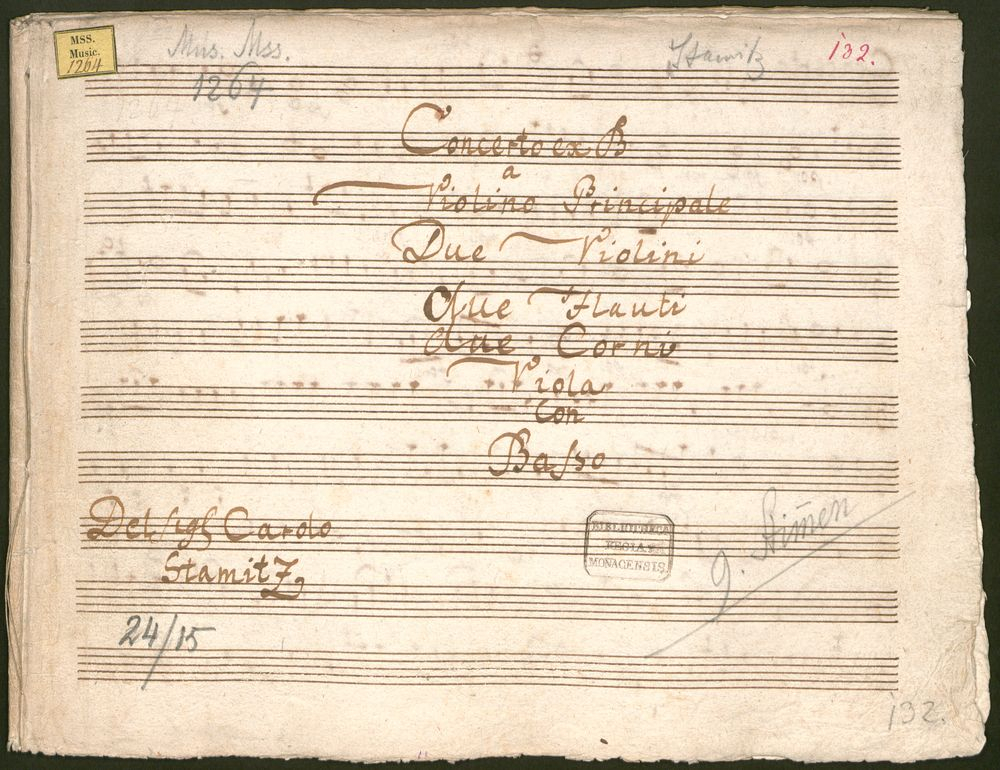 MSS.
Music.
1264
Mus. Mss.
1264
Stamitz
132.
Concerto ex B
a
Violino Principale
Due Violini
due Flauti
due Corni
Viola
Con
Basso
Del Sigl Carolo
Stamitz
BIBLIOTHECA
REGIA
MONACENSIS.
9. Stim̄en
24/15
132.